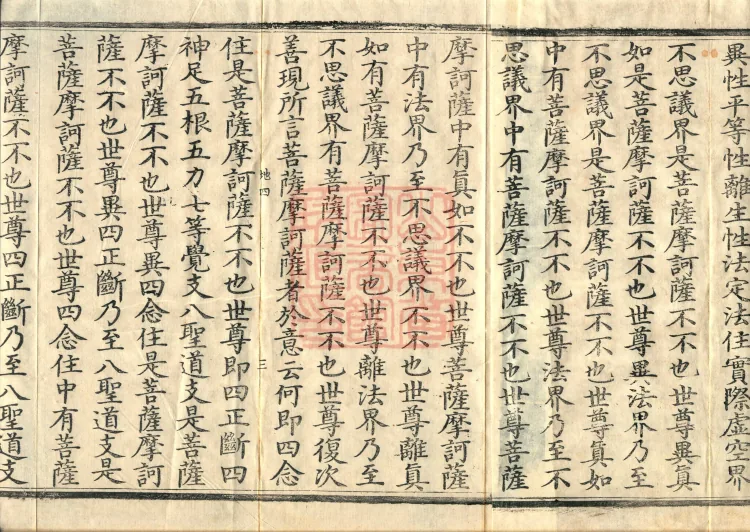 異性平等性離生性法定法住實際虛空界
不思議界是菩薩摩訶薩不不也世尊異真
如是菩薩摩訶薩不不也世尊異法界乃至
不思議界是菩薩摩訶薩不不也世尊真如
中有菩薩摩訶薩不不也世尊法界乃至不
思議界中有菩薩摩訶薩不不也世尊菩薩
摩訶薩中有真如不不也世尊菩薩摩訶薩
中有法界乃至不思議界不不也世尊離真
如有菩薩摩訶薩不不也世尊離法界乃至
不思議界有菩薩摩訶薩不不也世尊復次
善現所言菩薩摩訶薩者於意云何即四念
地四
三
住是菩薩摩訶薩不不也世尊即四正斷四
神足五根五力七等覺支八聖道支是菩薩
摩訶薩不不也世尊異四念住是菩薩摩訶
薩不不也世尊異四正斷乃至八聖道支是
菩薩摩訶薩不不也世尊四念住中有菩薩
摩訶薩不不也世尊四正斷乃至八聖道支